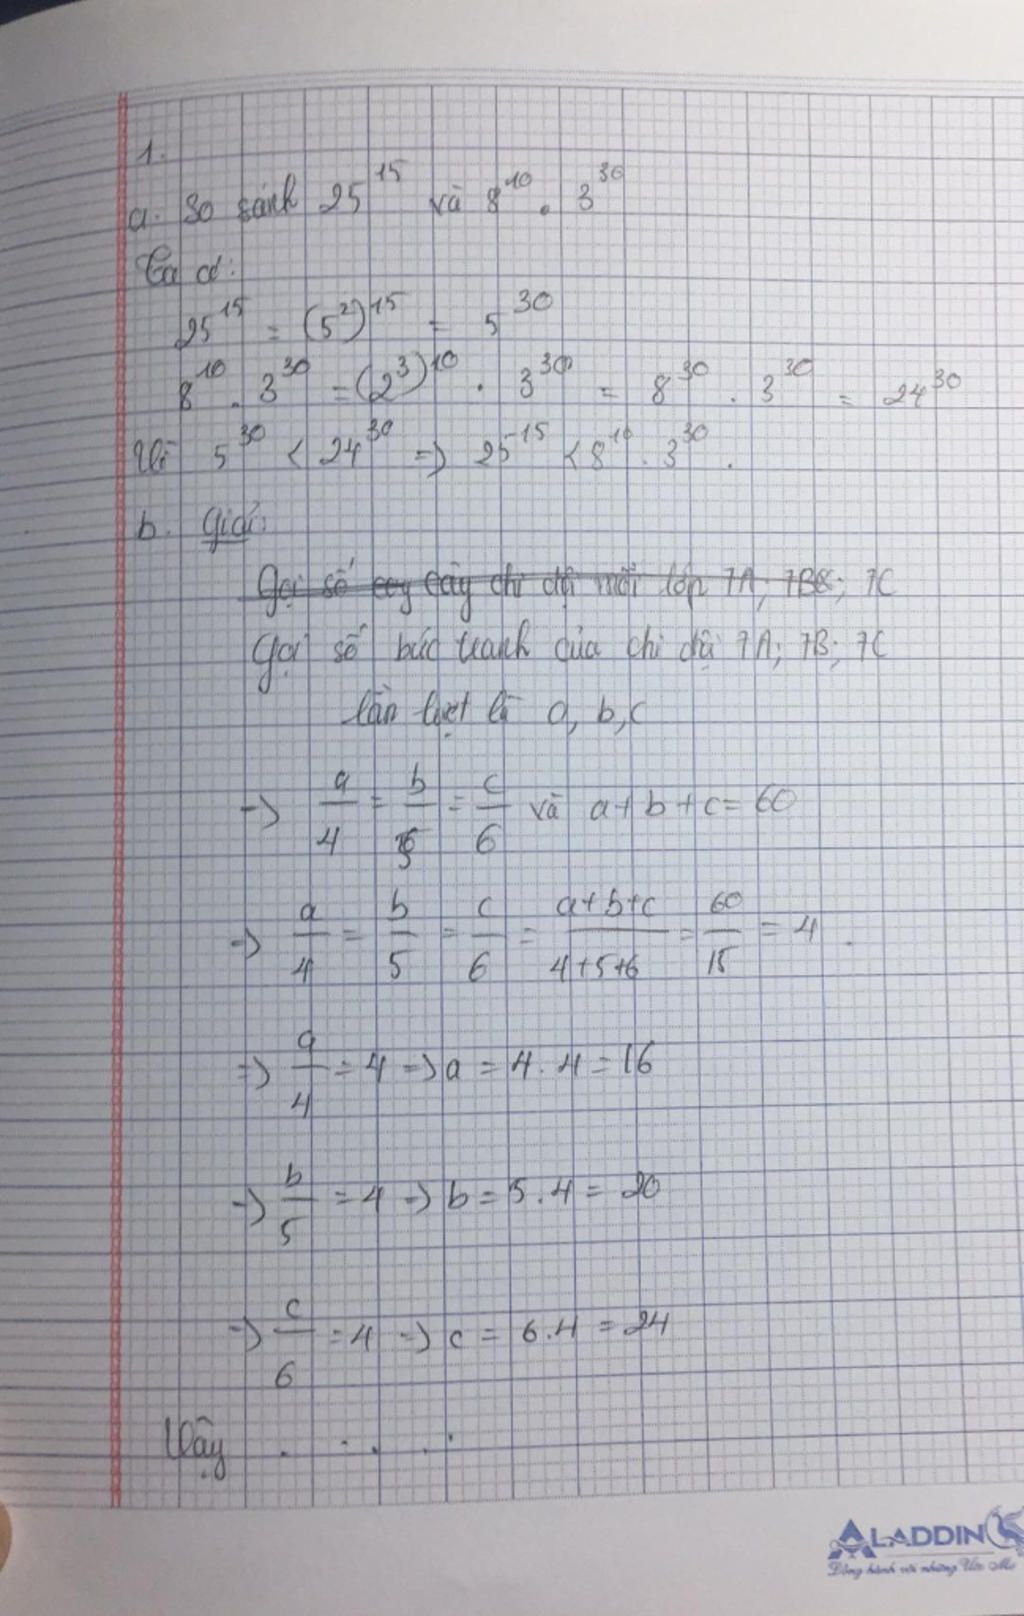 1.
a. So sánh 25^15 và 8^10 . 3^30
Ta có:
25^15 = (5^2)^15 = 5^30
8^10 . 3^30 = (2^3)^10 . 3^30 = 8^30 . 3^30 = 24^30
Vì 5^30 < 24^30 => 25^15 < 8^10 . 3^30 .
b. Giải:
Gọi số cây chi đội mỗi lớp 7A; 7B; 7C
Gọi số bức tranh của chi đội 7A; 7B; 7C
lần lượt là a, b, c
=> a/4 = b/5 = c/6 và a + b + c = 60
=> a/4 = b/5 = c/6 = a+b+c/4+5+6 = 60/15 = 4 .
=> a/4 = 4 => a = 4 . 4 = 16
=> b/5 = 4 => b = 5 . 4 = 20
=> c/6 = 4 => c = 6 . 4 = 24
Vậy . . . . .
ALADDIN
Đồng hành với những Ước Mơ